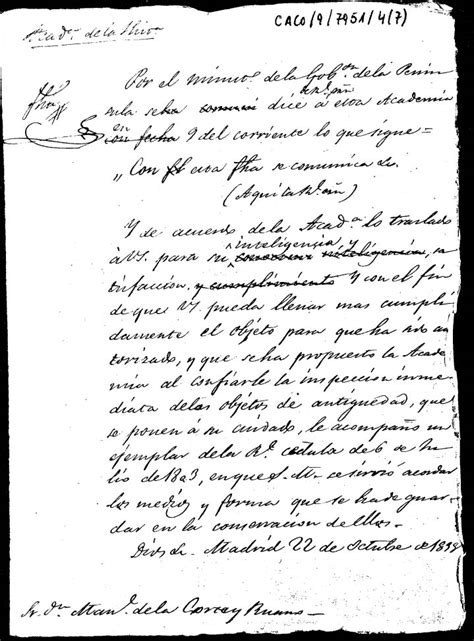 CACO/9/7951/4/7)
Rl. Acadª. de la Histª.
fha
Por el minrio. de la Gobon. de la Penin
sula se ha dice á esta Academia
Rl. orn
en
con fecha 9 del corriente lo que sigue =
„Con fl esta fha se comunica &c.
(Aqui la Rl. orn)
Y de acuerdo de la Acadª. lo traslado
á V.S. para su inteligencia, sa
inteligencia y
tisfaccion, y cumplimiento Y con el fin
de que V.S. pueda llenar mas cumpli
damente el objeto para que ha sido au
torizado, y que se ha propuesto la Acade
mia al confiarle la inspeccion inme
diata de los objetos de antigüedad, que
se ponen á su cuidado, le acompaño un
ejemplar de la Rl. cedula de 6 de Ju
lio de 1803, en que S.M. se sirvió acordar
los medios y forma que se ha de guar
dar en la conservacion de ellos.
Dios &c. Madrid 22 de Octubre de 1838
Sr. Dn. Manl. de la Corte y Ruano =